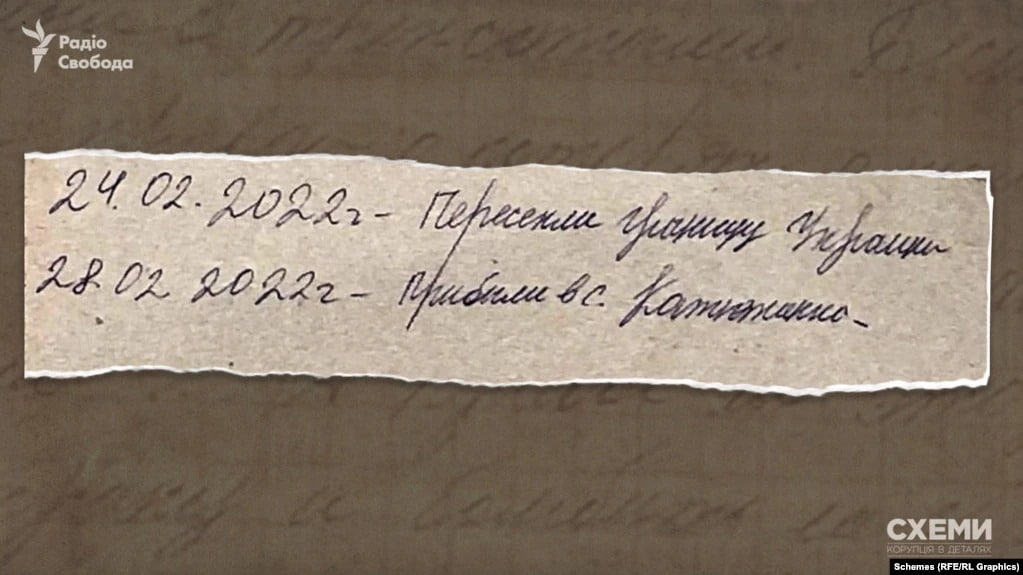 Радіо
Свобода
24.02.2022г - Пересекли границу Украины
28.02 2022г - Прибыли в с. Катюжанка
СХЕМИ
КОРУПЦІЯ В ДЕТАЛЯХ
Schemes (RFE/RL Graphics)